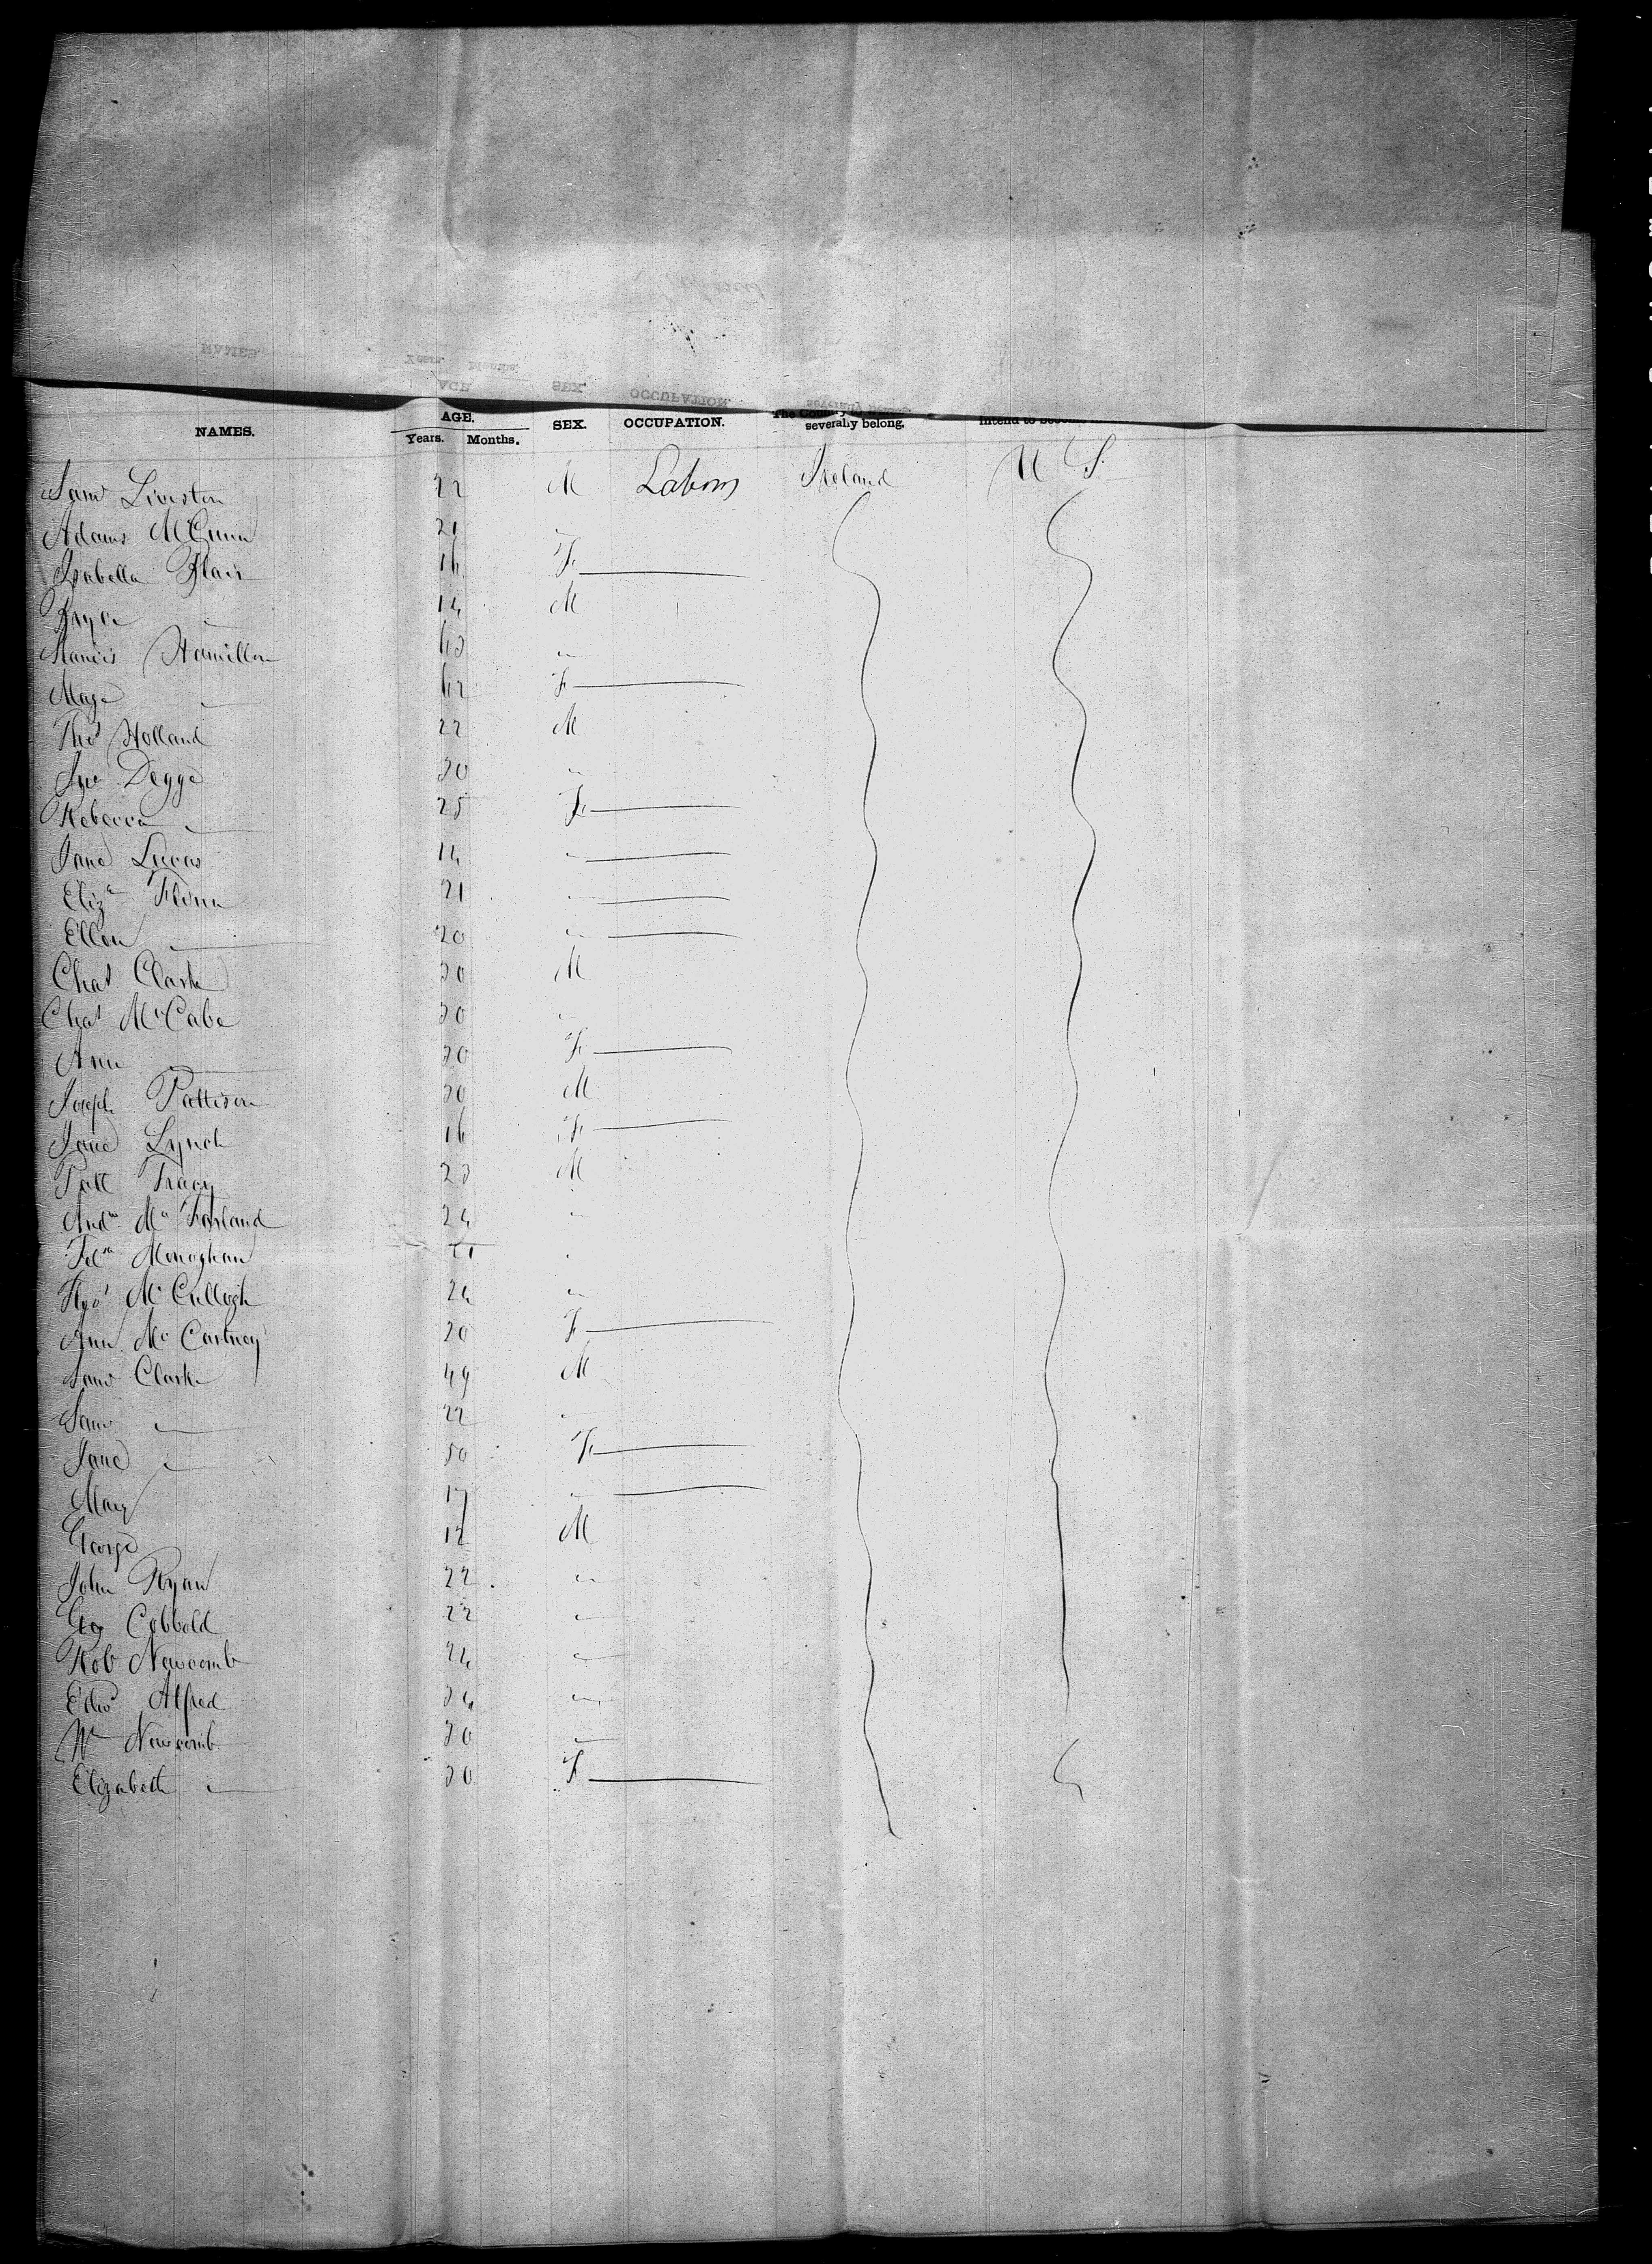 NAMES. AGE. Years. Months. SEX. OCCUPATION. severally belong. intend to become
Saml Liviston 22 M Labour Ireland U S.
Adams McCunn 21 "
Isabella Blair 16 F
Bryce " 14 M
Francis Hamilton 63 "
Mary " 62 F
Thos Holland 22 M
Jno Degge 30 "
Rebecca " 25 F
Jane Lucas 14 "
Eliza Flinn 21 "
Ellen " 20 "
Chas Clark 30 M
Chas McCabe 30 "
Ann " 30 F
Joseph Pattison 30 M
Jane Lynch 16 F
Patt Tracy 23 M
Andw McFarland 24 "
Monoghan 21 "
Thos McCullogh 24 "
Ann McCartney 20 F
Saml Clark 49 M
Saml " 22 "
Jane " 50 F
Mary 17 "
George 12 M
John Ryan 22 "
Geo Cobbold 22 "
Rob Newcomb 24 "
Edwd Alfred 34 "
Wm Newcomb 30 "
Elizabeth " 30 F